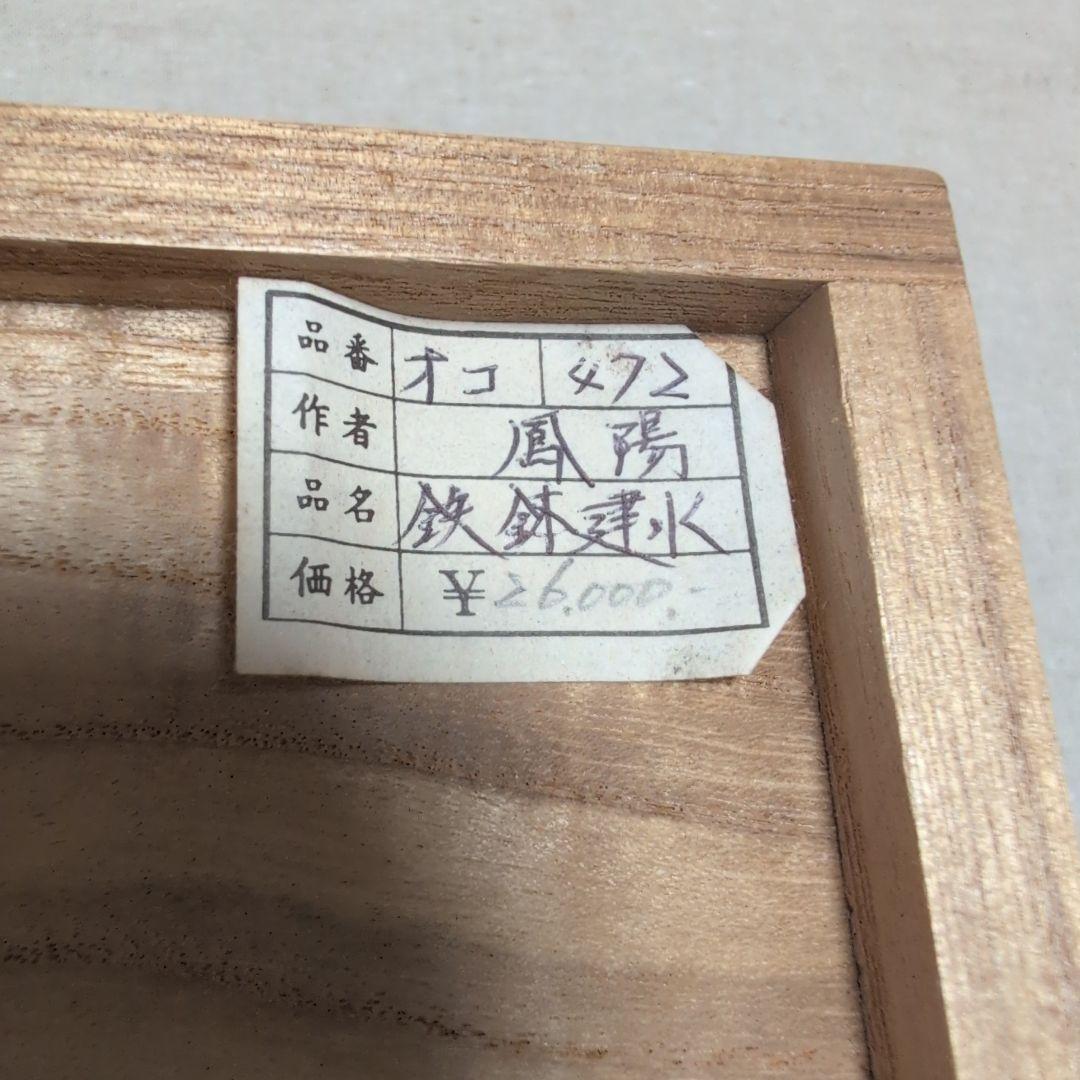 品番 オコ 472
作者 鳳陽
品名 鉄鉢建水
価格 ¥26,000.-